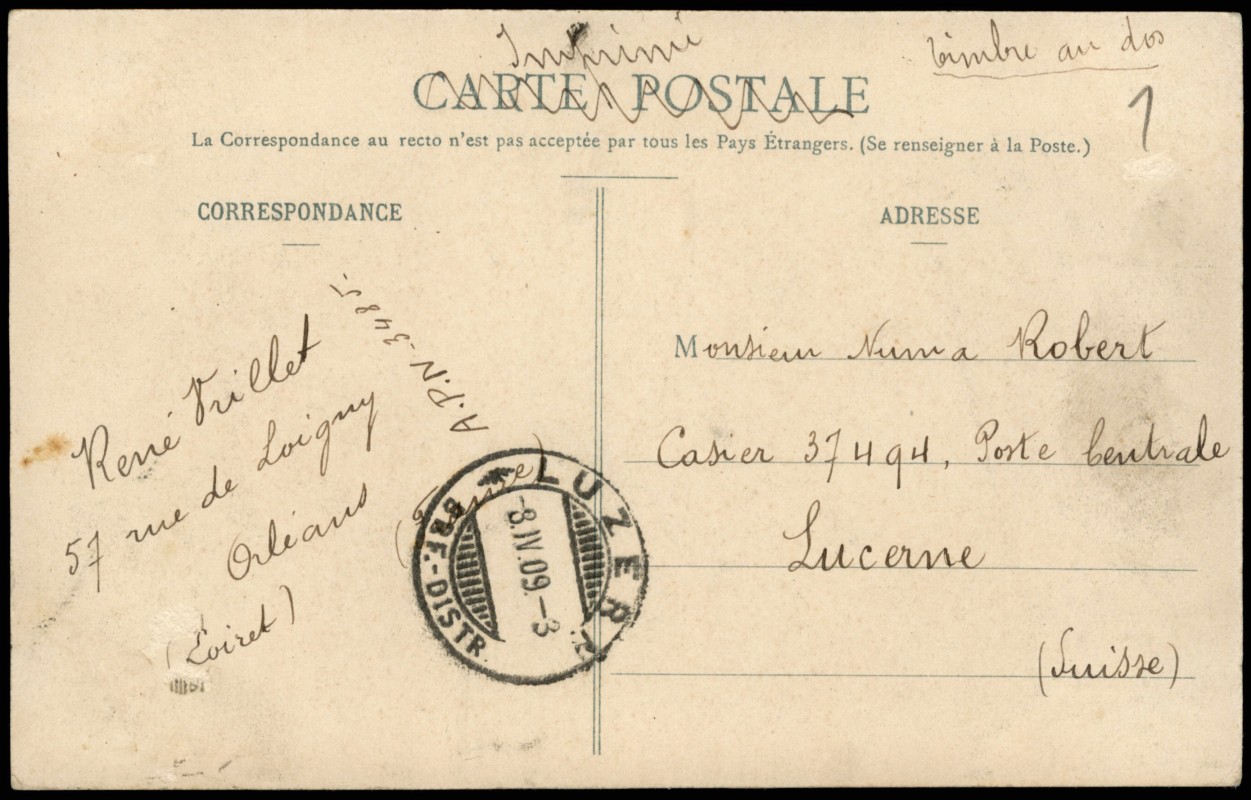 Imprimé
timbre au dos
CARTE POSTALE
1
La Correspondance au recto n'est pas acceptée par tous les Pays Étrangers. (Se renseigner à la Poste.)
CORRESPONDANCE
ADRESSE
A.P.N. 3485.
René Vrillet
57 rue de Loigny
Orléans
(Loiret)
(France)
LUZERN
BRF.-DISTR.
-8.IV.09.-8
Monsieur Numa Robert
Casier 37494, Poste Centrale
Lucerne
(Suisse)